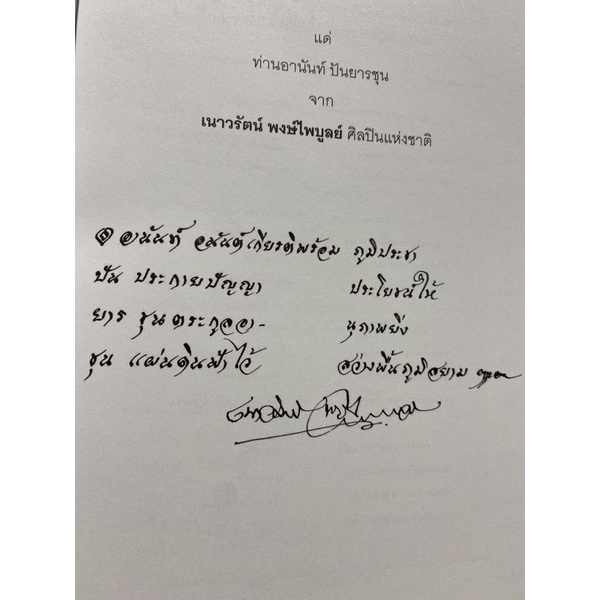 แด่
ท่านอานันท์ ปันยารชุน
จาก
เนาวรัตน์ พงษ์ไพบูลย์ ศิลปินแห่งชาติ
๏ อานันท์ อนันต์เกียรติพร้อม ภูมิประชา
ปัน ประกายปัญญา ประโยชน์ให้
ยาร ชุนตระกูลอา- นุภาพยิ่ง
ชุน แผ่นดินฟ้าไว้ สว่างพื้นภูมิสยาม